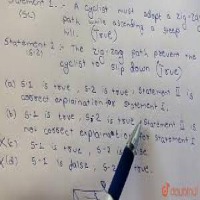 Statement 1 :- A cyclist must adopt a zig-zag
(SC) path while ascending a steep
hill. (True)
Statement 2 :- The zig-zag path prevent the
(S.2) cyclist to slip down (True)
(a) S-1 is true, S-2 is true, Statement II is
correct explanation for Statement I.
(b) S-1 is true, S-2 is true, Statement II is
not correct explanation for Statement I
X(c) S-1 is true, S-2 is false.
X(d) S-1 is false, S-2 is true.
doubtnut